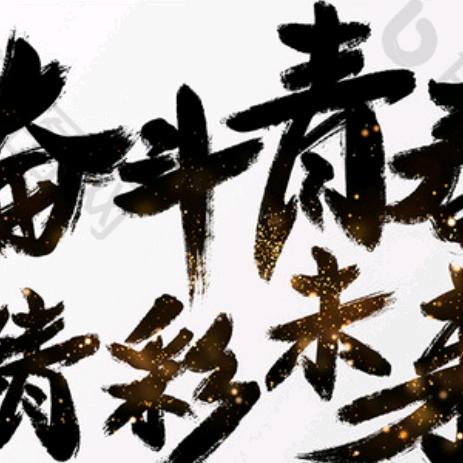 奋斗青春
精彩未来